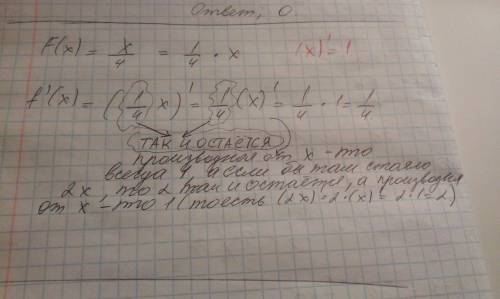 Ответ, 0.
F(x) = x/4 = 1/4 · x (x)' = 1
f'(x) = (1/4 x)' = 1/4 (x)' = 1/4 · 1 = 1/4
ТАК И ОСТАЁТСЯ
производная от x - это
всегда 1, а если бы там стояло
2x, то 2 так и остаётся, а производная
от x' - это 1 (тоесть (2x)=2·(x)'=2·1=2)